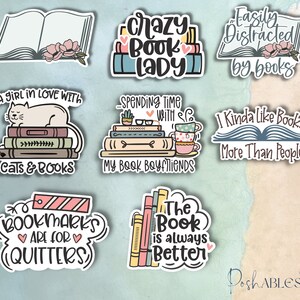 Crazy
Book
LADY
Easily
Distracted
by books
A GIRL IN LOVE WITH
CATS & BOOKS
SPENDING TIME
WITH
MY BOOK BOYFRIENDS
I Kinda Like Books
More Than People
BOOKMARKS
ARE FOR
QUITTERS
The
Book
is always
Better
PoshABLES